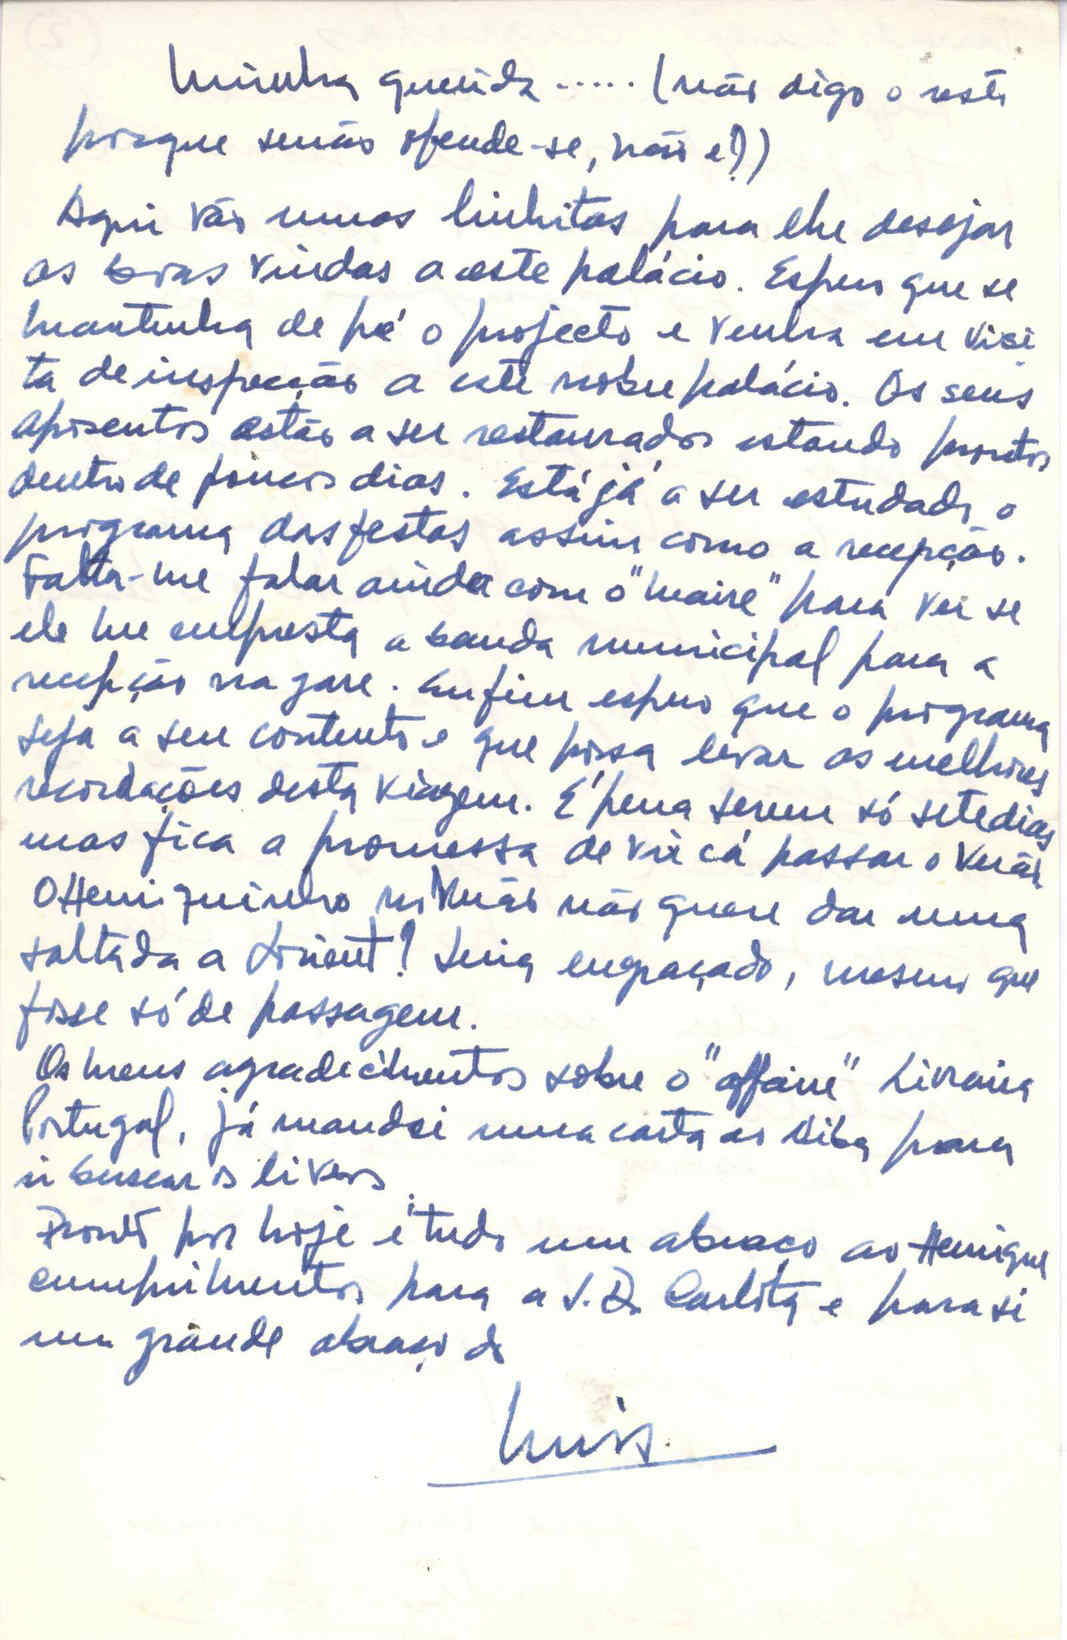 Minha querida ..... (não digo o resto
porque senão ofende-se, não é?))
Aqui vão umas linhitas para lhe desejar
as boas vindas a este palácio. Espero que se
mantenha de pé o projecto e venha em visi
ta de inspecção a este nobre palácio. Os seus
aposentos estão a ser restaurados estando prontos
dentro de poucos dias. Está já a ser estudado o
programa das festas assim como a recepção.
Falta-me falar ainda com o "maire" para ver se
ele me empresta a banda municipal para a
recepção na gare. Enfim espero que o programa
seja a seu contento e que possa levar as melhores
recordações desta viagem. É pena serem só sete dias
mas fica a promessa de vir cá passar o Verão
O Henriquinho no Verão não quere dar uma
saltada a Lorient? Seria engraçado, mesmo que
fosse só de passagem.
Os meus agradecimentos sobre o "affaire" Livraria
Portugal, já mandei uma carta ao para
ir buscar os livros.
Pronto por hoje é tudo um abraço ao Henrique
cumprimentos para a S. D. Carlota e para si
um grande abraço do
Luis.